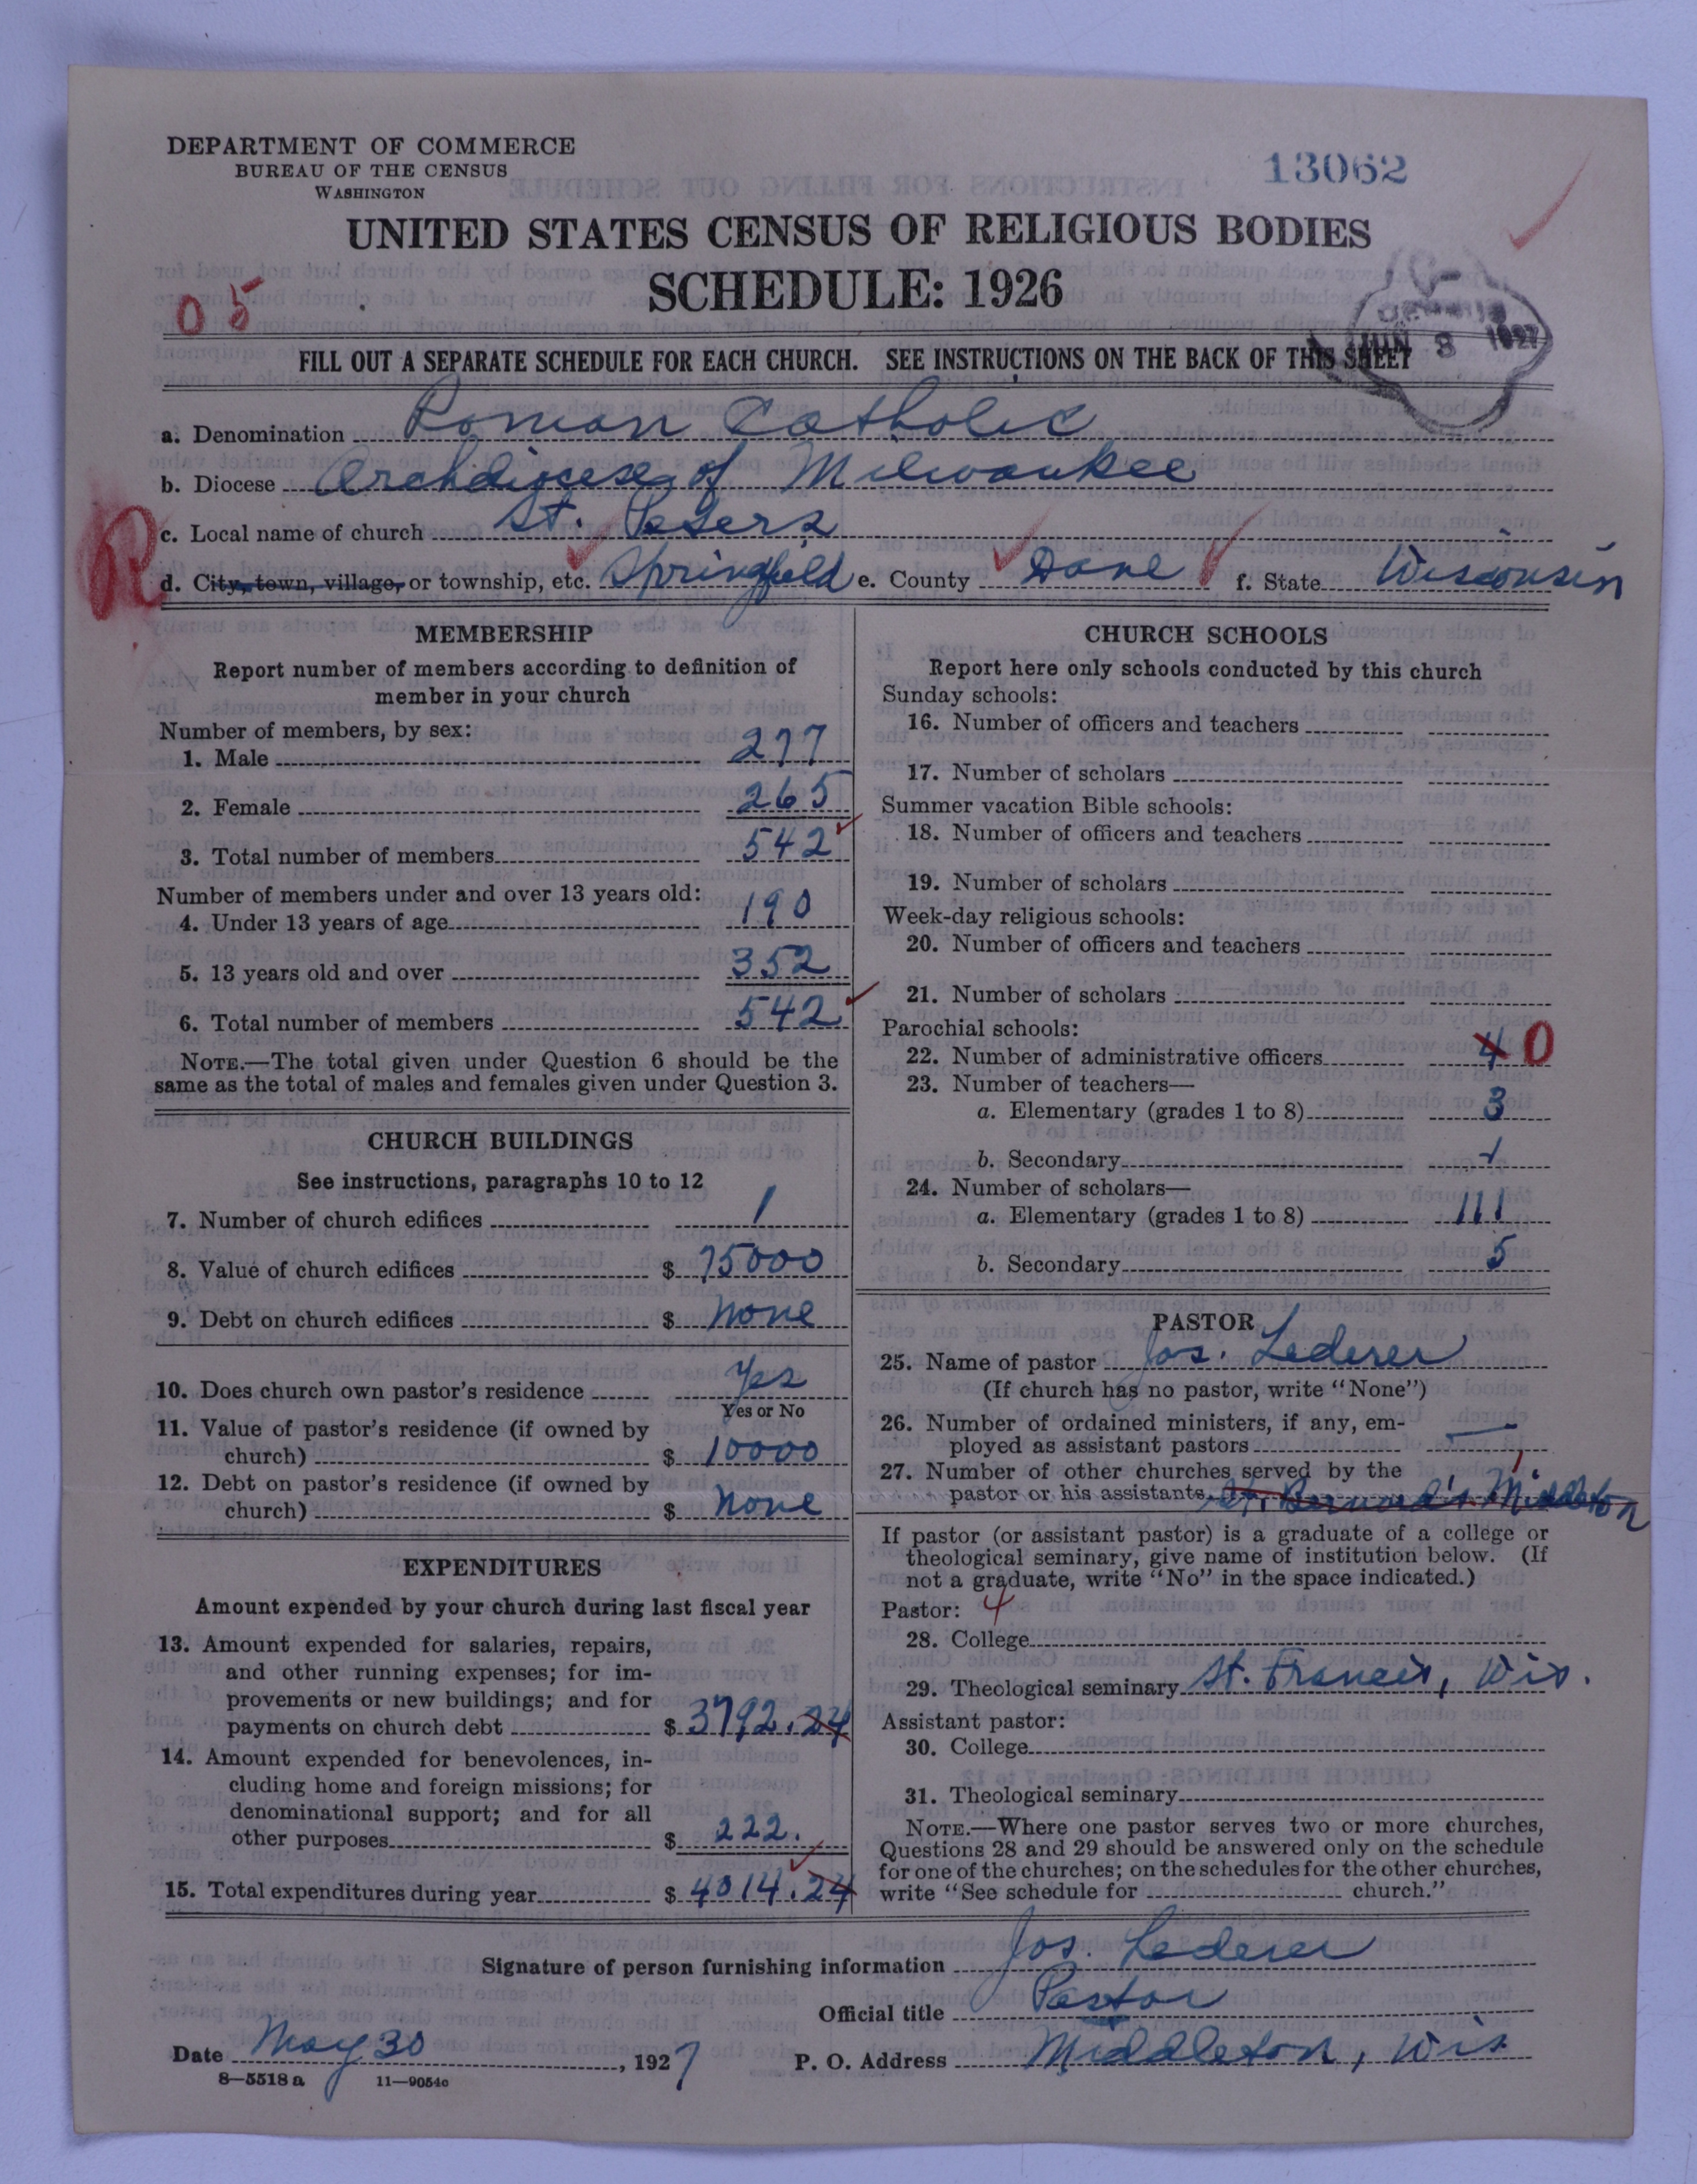 DEPARTMENT OF COMMERCE
BUREAU OF THE CENSUS
WASHINGTON
13062
UNITED STATES CENSUS OF RELIGIOUS BODIES
SCHEDULE: 1926
05
CENSUS
JUN 8 1927
FILL OUT A SEPARATE SCHEDULE FOR EACH CHURCH. SEE INSTRUCTIONS ON THE BACK OF THIS SHEET
a. Denomination Roman Catholic
b. Diocese Archdiocese of Milwaukee
c. Local name of church St. Peters
R
d. City, town, village, or township, etc. Springfield e. County Dane f. State Wisconsin
MEMBERSHIP
Report number of members according to definition of
member in your church
Number of members, by sex:
1. Male 277
2. Female 265
3. Total number of members 542
Number of members under and over 13 years old:
4. Under 13 years of age 190
5. 13 years old and over 352
6. Total number of members 542
NOTE.—The total given under Question 6 should be the
same as the total of males and females given under Question 3.
CHURCH BUILDINGS
See instructions, paragraphs 10 to 12
7. Number of church edifices 1
8. Value of church edifices $ 75000
9. Debt on church edifices $ None
10. Does church own pastor's residence Yes
Yes or No
11. Value of pastor's residence (if owned by
church) $ 10000
12. Debt on pastor's residence (if owned by
church) $ None
EXPENDITURES
Amount expended by your church during last fiscal year
13. Amount expended for salaries, repairs,
and other running expenses; for im-
provements or new buildings; and for
payments on church debt $ 3792.24
14. Amount expended for benevolences, in-
cluding home and foreign missions; for
denominational support; and for all
other purposes $ 222.
15. Total expenditures during year $ 4014.24
CHURCH SCHOOLS
Report here only schools conducted by this church
Sunday schools:
16. Number of officers and teachers
17. Number of scholars
Summer vacation Bible schools:
18. Number of officers and teachers
19. Number of scholars
Week-day religious schools:
20. Number of officers and teachers
21. Number of scholars
Parochial schools:
22. Number of administrative officers 4 0
23. Number of teachers—
a. Elementary (grades 1 to 8) 3
b. Secondary
24. Number of scholars—
a. Elementary (grades 1 to 8) 111
b. Secondary 5
PASTOR
25. Name of pastor Jos. Lederer
(If church has no pastor, write "None")
26. Number of ordained ministers, if any, em-
ployed as assistant pastors —
27. Number of other churches served by the 1
pastor or his assistants St. Bernard's Middleton
If pastor (or assistant pastor) is a graduate of a college or
theological seminary, give name of institution below. (If
not a graduate, write "No" in the space indicated.)
Pastor: 4
28. College
29. Theological seminary St. Francis, Wis.
Assistant pastor:
30. College
31. Theological seminary
NOTE.—Where one pastor serves two or more churches,
Questions 28 and 29 should be answered only on the schedule
for one of the churches; on the schedules for the other churches,
write "See schedule for church."
Signature of person furnishing information Jos. Lederer
Official title Pastor
Date May 30, 1927 P. O. Address Middleton, Wis
8—5518 a 11—9054c